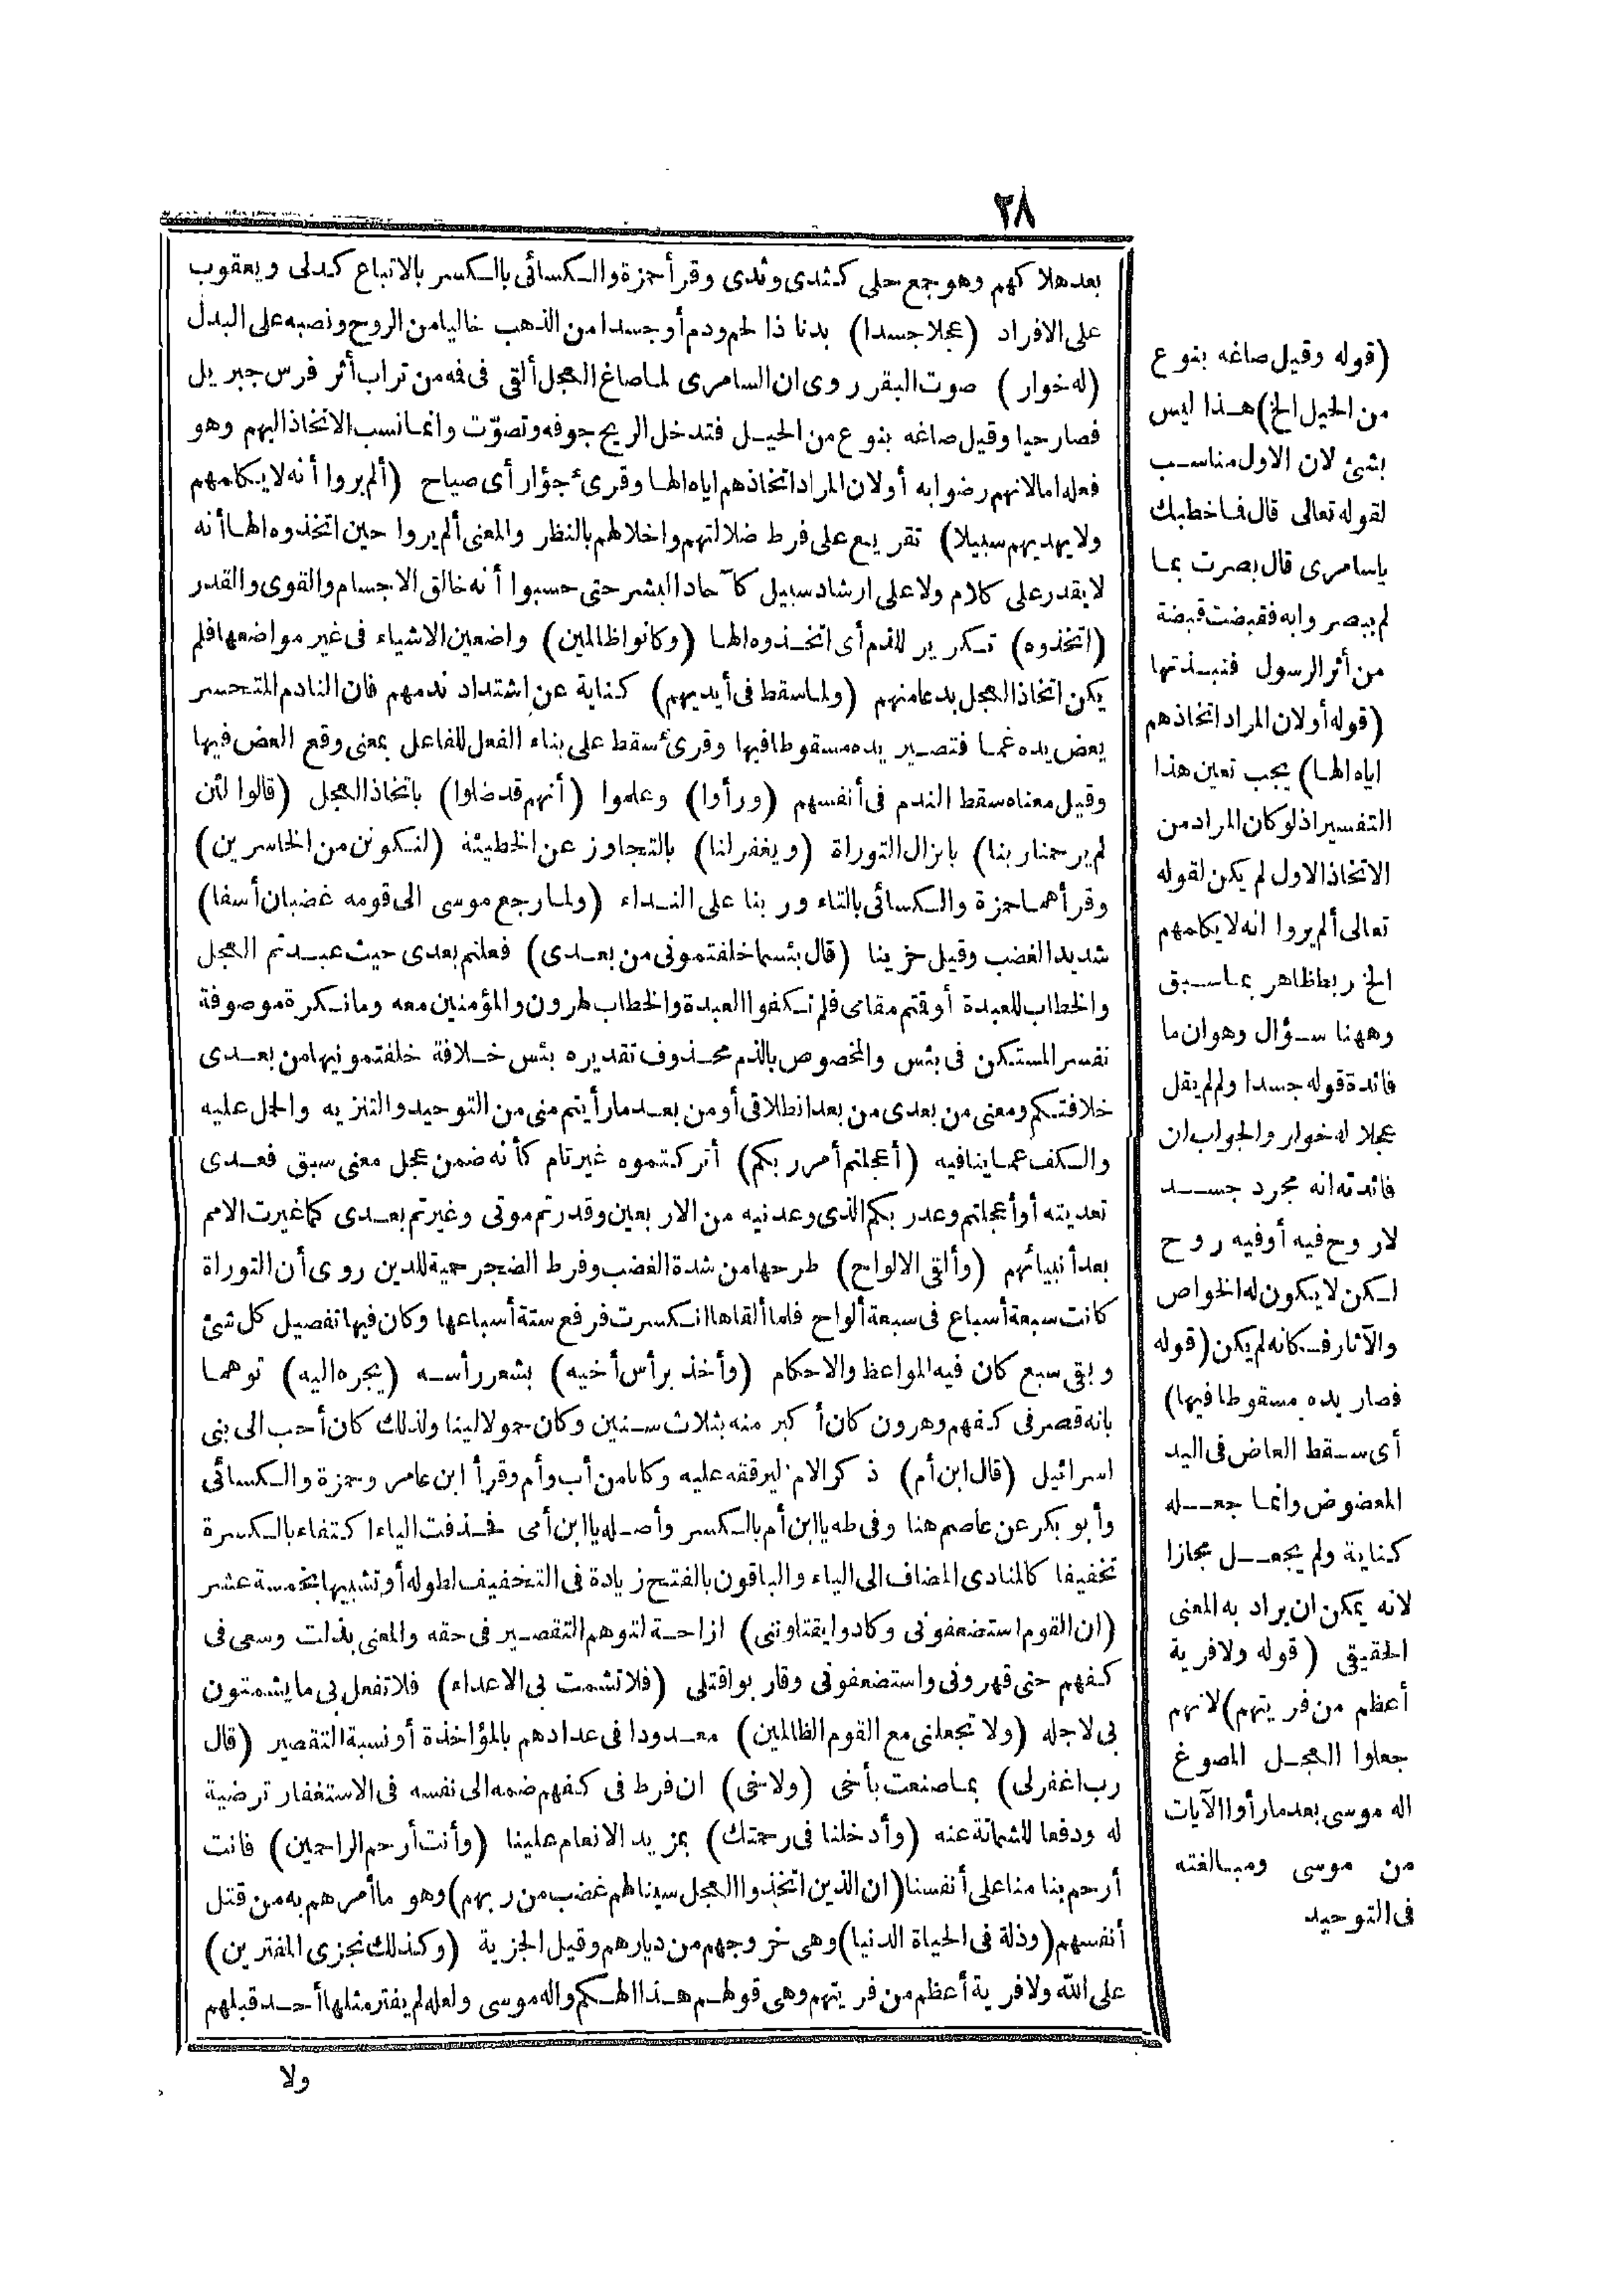 ٢٨
بعد هلاكهم وهو جمع حلى كثدى وثدى وقرأ حمزة والكسائى بالكسر بالاتباع كدلى ويعقوب
على الافراد (عجلا جسدا) بدنا ذا لحم ودم أو جسدا من الذهب خاليا من الروح ونصبه على البدل
(له خوار) صوت البقر روى ان السامرى لما صاغ العجل ألقى فى فه من تراب أثر فرس جبريل
فصار حيا وقيل صاغه بنوع من الحيل فتدخل الريح جوفه وتصوّت وانما نسب الاتخاذ اليهم وهو
فعله اما لانهم رضوا به أو لان المراد اتخاذهم اياه الها وقرئ جؤار أى صياح (ألم يروا أنه لا يكلمهم
ولا يهديهم سبيلا) تقريع على فرط ضلالتهم واخلالهم بالنظر والمعنى ألم يروا حين اتخذوه الها أنه
لا يقدر على كلام ولا على ارشاد سبيل كآحاد البشر حتى حسبوا أنه خالق الاجسام والقوى والقدر
(اتخذوه) تكرير للذم أى اتخذوه الها (وكانوا ظالمين) واضعين الاشياء فى غير مواضعها فلم
يكن اتخاذ العجل بدعا منهم (ولما سقط فى أيديهم) كناية عن اشتداد ندمهم فان النادم المتحسر
يعض يده غما فتصير يده مسقوطا فيها وقرئ سقط على بناء الفعل للفاعل بمعنى وقع العض فيها
وقيل معناه سقط الندم فى أنفسهم (ورأوا) وعلموا (أنهم قد ضلوا) باتخاذ العجل (قالوا لئن
لم يرحمنا ربنا) بانزال التوراة (ويغفر لنا) بالتجاوز عن الخطيئة (لنكونن من الخاسرين)
وقرأهما حمزة والكسائى بالتاء وربنا على النداء (ولما رجع موسى الى قومه غضبان أسفا)
شديد الغضب وقيل حزينا (قال بئسما خلفتمونى من بعدى) فعلتم بعدى حيث عبدتم العجل
والخطاب للعبدة أو قتم مقامى فلم تكفوا العبدة والخطاب لهرون والمؤمنين معه وما نكرة موصوفة
تفسر المستكن فى بئس والمخصوص بالذم محذوف تقديره بئس خلافة خلفتمونيها من بعدى
خلافتكم ومعنى من بعدى من بعد انطلاقى أو من بعد ما رأيتم منى من التوحيد والتنزيه والحمل عليه
والكف عما ينافيه (أعجلتم أمر ربكم) أتركتموه غير تام كأنه ضمن عجل معنى سبق فعدى
تعديته أو أعجلتم وعد ربكم الذى وعدنيه من الاربعين وقدرتم موتى وغيرتم بعدى كما غيرت الامم
بعد أنبيائهم (وألقى الالواح) طرحها من شدة الغضب وفرط الضجر حمية للدين روى أن التوراة
كانت سبعة أسباع فى سبعة ألواح فلما ألقاها انكسرت فرفع ستة أسباعها وكان فيها تفصيل كل شئ
وبقى سبع كان فيه المواعظ والاحكام (وأخذ برأس أخيه) بشعر رأسه (يجره اليه) توهما
بانه قصر فى كفهم وهرون كان أكبر منه بثلاث سنين وكان حمولا لينا ولذلك كان أحب الى بنى
اسرائيل (قال ابن أم) ذكر الام ليرققه عليه وكانا من أب وأم وقرأ ابن عامر وحمزة والكسائى
وأبو بكر عن عاصم هنا وفى طه يا ابن أم بالكسر وأصله يا ابن أمى فحذفت الياء اكتفاء بالكسرة
تخفيفا كالمنادى المضاف الى الياء والباقون بالفتح زيادة فى التخفيف لطوله أو تشبيها بخمسة عشر
(ان القوم استضعفونى وكادوا يقتلوننى) ازاحة لتوهم التقصير فى حقه والمعنى بذلت وسعى فى
كفهم حتى قهرونى واستضعفونى وقاربوا قتلى (فلا تشمت بى الاعداء) فلا تفعل بى ما يشمتون
بى لاجله (ولا تجعلنى مع القوم الظالمين) معدودا فى عدادهم بالمؤاخذة أو نسبة التقصير (قال
رب اغفر لى) بما صنعت بأخى (ولاخى) ان فرط فى كفهم ضمه الى نفسه فى الاستغفار ترضية
له ودفعا للشماتة عنه (وأدخلنا فى رحمتك) بمزيد الانعام علينا (وأنت أرحم الراحمين) فانت
أرحم بنا منا على أنفسنا (ان الذين اتخذوا العجل سينالهم غضب من ربهم) وهو ما أمرهم به من قتل
أنفسهم (وذلة فى الحياة الدنيا) وهى خروجهم من ديارهم وقيل الجزية (وكذلك نجزى المفترين)
على الله ولا فرية أعظم من فريتهم وهى قولهم هذا الهكم واله موسى ولعله لم يفتر مثلها أحد قبلهم
ولا
(قوله وقيل صاغه بنوع
من الحيل الخ) هذا ليس
بشئ لان الاول مناسب
لقوله تعالى قال فما خطبك
يا سامرى قال بصرت بما
لم يبصروا به فقبضت قبضة
من أثر الرسول فنبذتها
(قوله أو لان المراد اتخاذهم
اياه الها) يجب تعين هذا
التفسير اذ لو كان المراد من
الاتخاذ الاول لم يكن لقوله
تعالى ألم يروا انه لا يكلمهم
الخ ربط ظاهر بما سبق
وههنا سؤال وهو ان ما
فائدة قوله جسدا ولم لم يقل
عجلا له خوار والجواب ان
فائدته انه مجرد جسد
لا روح فيه أو فيه روح
لكن لا يكون له الخواص
والآثار فكانه لم يكن (قوله
فصار يده مسقوطا فيها)
أى سقط العاض فى اليد
المعضوض وانما جعله
كناية ولم يجعل مجازا
لانه يمكن ان يراد به المعنى
الحقيقى (قوله ولا فرية
أعظم من فريتهم) لانهم
جعلوا العجل المصوغ
اله موسى بعد ما رأوا الآيات
من موسى ومبالغته
فى التوحيد